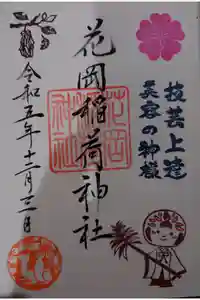 技芸上達
美容の神様
花岡稲荷神社
花岡
神社
令和五年十二月三日